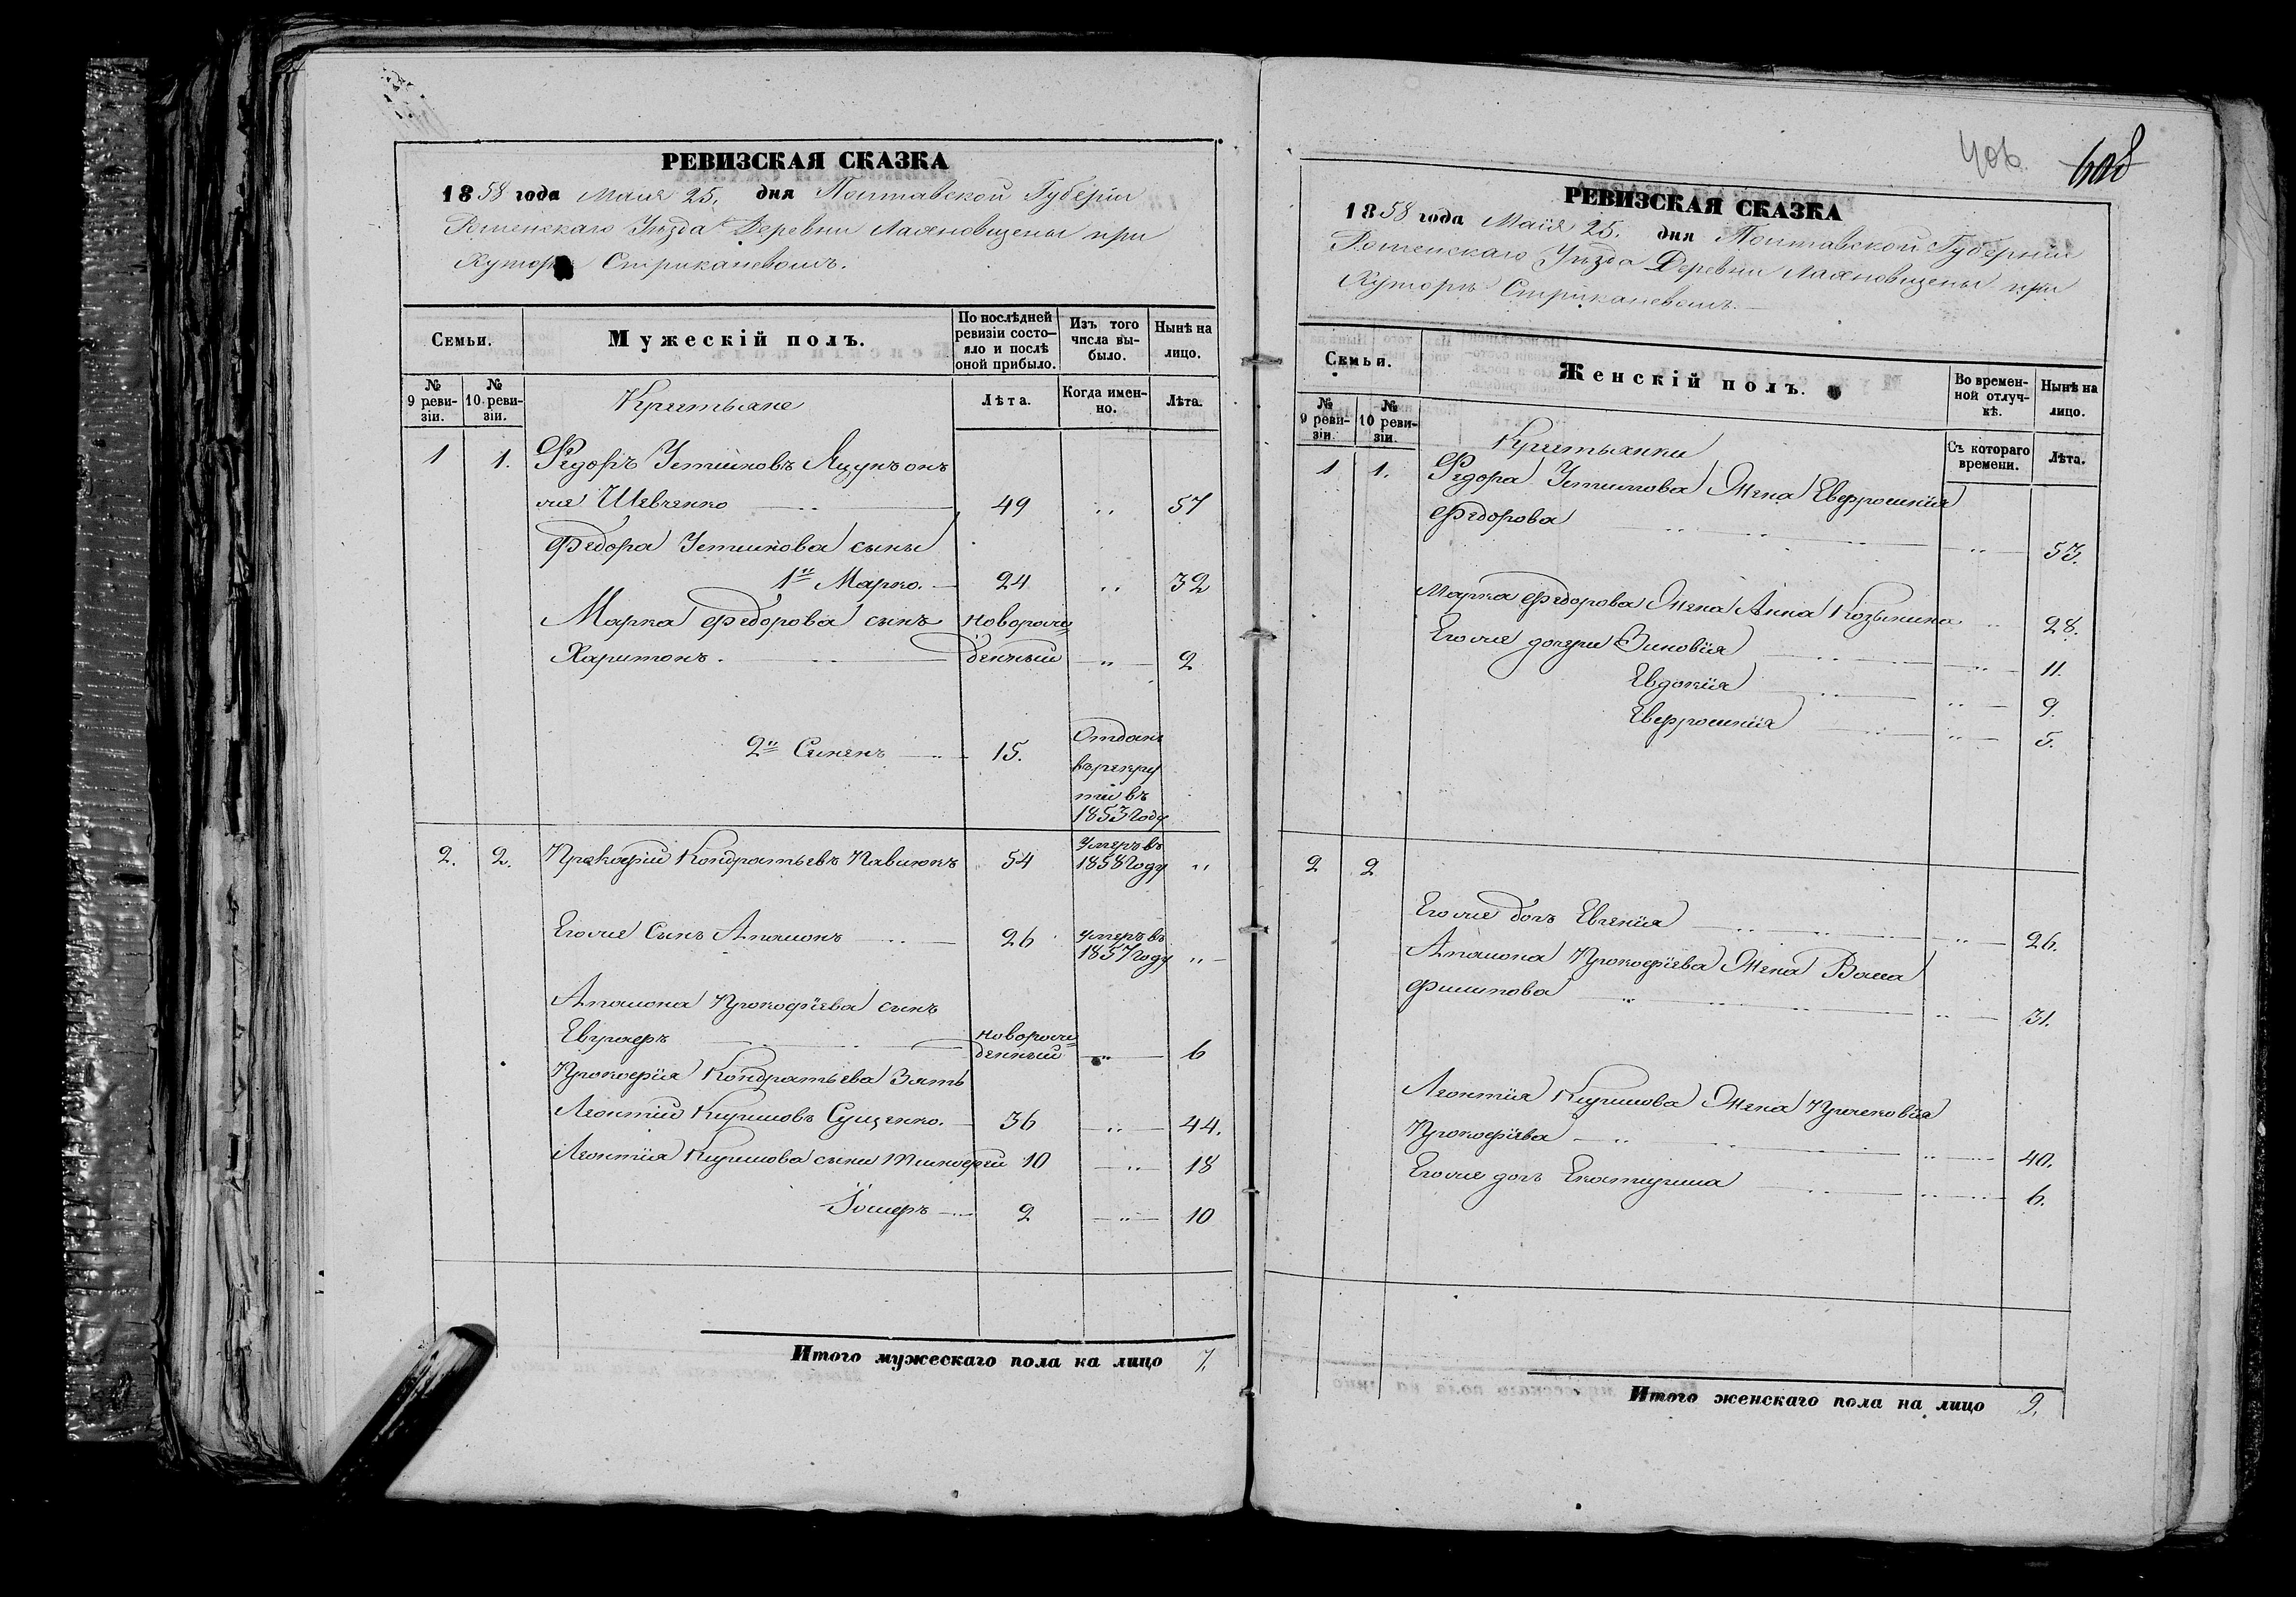 РЕВИЗСКАЯ СКАЗКА
1858 года Маія 25. дня Полтавской Губерніи
Роменскаго Уѣзда Деревни при
Хуторѣ
Семьи.
Мужескій полъ.
По послѣдней ревизіи состояло и послѣ оной прибыло.
Изъ того числа выбыло.
Нынѣ на лицо.
№ 9 ревизіи.
№ 10 ревизіи.
Крестьяне
Лѣта.
Когда именно.
Лѣта.
1 1. Федоръ Устимовъ Яцунъ онъ
же Шевченко 49 „ 57
Федора Устимова сыны
1й Марко. 24 „ 32
Марка Федорова сынъ новорож
Харитонъ. денный „ 2
2й Семенъ 15. Отданъ
въ рекру
ты въ
1853 году
2. 2. Прокофій Кондратьевъ Павлюкъ 54 Умеръ въ 1858 году „
Его же сынъ 26 умеръ въ 1857 году „
Прокофіева сынъ
новорож
денный „ 6
Прокофія Кондратьева зять
Леонтій Кириловъ Сущенко. 36 „ 44.
Леонтія Кирилова сыны Тимофей 10 „ 18
2 „ 10
Итого мужескаго пола на лицо 7.
406
608
РЕВИЗСКАЯ СКАЗКА
1858 года Маія 25. дня Полтавской Губерніи
Роменскаго Уѣзда Деревни при
Хуторѣ
Семьи.
Женскій полъ.
Во временной отлучкѣ.
Нынѣ на лицо.
№ 9 ревизіи.
№ 10 ревизіи.
Крестьянки
Съ котораго времени.
Лѣта.
1 1. Федора Устимова Жена Евфросинія
Федорова „ 53.
Марка Федорова Жена Анна Козьмина „ 28.
Его же дочери Зиновія „ 11.
Евдокія „ 9.
Евфросинія „ 5.
2 2
Его же дочь Евгенія „ 26.
Прокофіева Жена
Филипова „ 31.
Леонтія Кирилова Жена
Прокофіева „ 40.
Его же дочь Екатерина „ 6.
Итого женскаго пола на лицо 9.